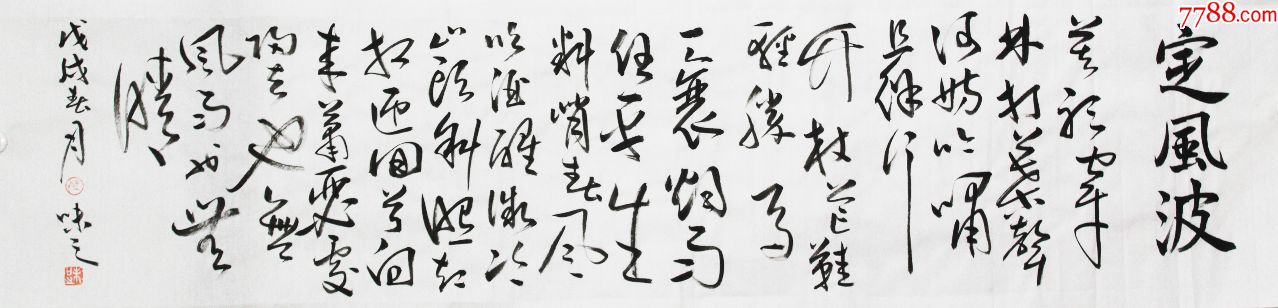 7788.com
定風波
莫聽穿
林打葉聲
何妨吟嘯
且徐行
竹杖芒鞋
輕勝馬
一蓑烟雨
任平生
料峭春风
吹酒醒微冷
山頭斜照却
相迎回首向
來蕭瑟處
歸去也無
風雨也無
晴
戊戌春月 味之